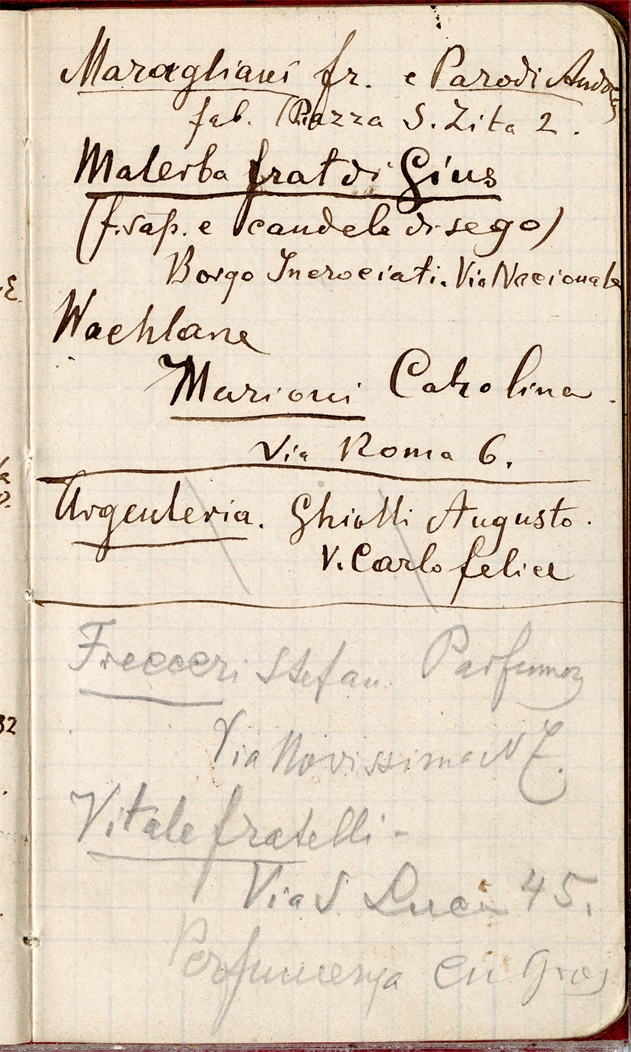 Maragliani fr. e Parodi Ando
fab. Piazza S. Zita 2.
Malerba frat di Gius
(f. sap. e candele di sego)
Borgo Incrociati. Via Nacionale
Wachlane
Marioni Carolina.
Via Roma 6.
Argenteria. Ghiotti Augusto.
V. Carlo felice
Frecceri Stefan. Parfumer
Via Novissima N 7.
Vitale fratelli -
Via S. Luca 45.
Perfumerya en Gros